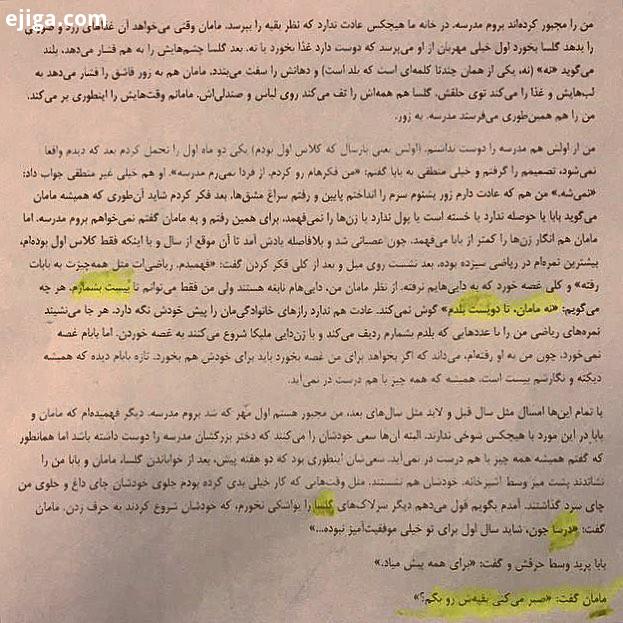 ejiga.com
من را مجبور کرده‌اند بروم مدرسه. در خانه ما هیچکس عادت ندارد که نظر بقیه را بپرسد. مامان وقتی می‌خواهد آن غذاهای زرد و
را بدهد گلسا بخورد اول خیلی مهربان از او می‌پرسد که دوست دارد غذا بخورد یا نه. بعد گلسا چشم‌هایش را به هم فشار می‌دهد، بلند
می‌گوید «نه» (نه، یکی از همان چندتا کلمه‌ای است که بلد است) و دهانش را سفت می‌بندد. مامان هم به زور قاشق را فشار می‌دهد به
لب‌هایش و غذا را می‌کند توی حلقش. گلسا هم همه‌اش را تف می‌کند روی لباس و صندلی‌اش. مامانم وقت‌هایش را اینطوری پر می‌کند.
من را هم همین‌طوری می‌فرستد مدرسه. به زور.
من از اولش هم مدرسه را دوست نداشتم. (اولش یعنی پارسال که کلاس اول بودم) یکی دو ماه اول را تحمل کردم بعد که دیدم واقعا
نمی‌شود، تصمیمم را گرفتم و خیلی منطقی به بابا گفتم: «من فکرهام رو کردم. از فردا نمی‌رم مدرسه». او هم خیلی غیر منطقی جواب داد:
«نمی‌شه.» من هم که عادت دارم زور بشنوم سرم را انداختم پایین و رفتم سراغ مشق‌ها. بعد فکر کردم شاید آن‌طوری که همیشه مامان
می‌گوید بابا یا حوصله ندارد یا خسته است یا پول ندارد یا زن‌ها را نمی‌فهمد. برای همین رفتم و به مامان گفتم نمی‌خواهم بروم مدرسه. اما
مامان هم انگار زن‌ها را کمتر از بابا می‌فهمد. چون عصبانی شد و بلافاصله یادش آمد تا آن موقع از سال و با اینکه فقط کلاس اول بوده‌ام،
بیشترین نمره‌ام در ریاضی سیزده بوده. بعد نشست روی مبل و بعد از کلی فکر کردن گفت: «فهمیدم. ریاضی‌ات مثل همه‌چیزت به بابات
رفته» و کلی غصه خورد که به دایی‌هایم نرفته. از نظر مامان من، دایی‌هام نابغه هستند ولی من فقط می‌توانم تا بیست بشمارم. هر چه
می‌گویم: «نه مامان، تا دویست بلدم» گوش نمی‌کند. عادت هم ندارد رازهای خانوادگی‌مان را پیش خودش نگه دارد. هر جا می‌نشیند
نمره‌های ریاضی من را با عددهایی که بلدم بشمارم ردیف می‌کند و با زن‌دایی ملیکا شروع می‌کنند به غصه خوردن. اما بابام غصه
نمی‌خورد، چون من به او رفته‌ام، می‌داند که اگر بخواهد برای من غصه بخورد باید برای خودش هم بخورد. تازه بابام دیده که همیشه
دیکته و نگارشم بیست است. همیشه که همه چیز با هم درست در نمی‌آید.
با تمام این‌ها امسال مثل سال قبل و لابد مثل سال‌های بعد، من مجبور هستم اول مهر که شد بروم مدرسه. دیگر فهمیده‌ام که مامان و
بابا در این مورد با هیچکس شوخی ندارند. البته آن‌ها سعی خودشان را می‌کنند که دختر بزرگشان مدرسه را دوست داشته باشد اما همانطور
که گفتم همیشه همه چیز با هم درست در نمی‌آید. سعی‌شان اینطوری بود که دو هفته پیش، بعد از خواباندن گلسا، مامان و بابا من را
نشاندند پشت میز وسط آشپزخانه. خودشان هم نشستند. مثل وقت‌هایی که کار خیلی بدی کرده بودم جلوی خودشان چای داغ و جلوی من
چای سرد گذاشتند. آمدم بگویم قول می‌دهم دیگر سرلاک‌های گلسا را یواشکی نخورم، که خودشان شروع کردند به حرف زدن. مامان
گفت: «درسا جون، شاید سال اول برای تو خیلی موفقیت‌آمیز نبوده...»
بابا پرید وسط حرفش و گفت: «برای همه پیش میاد.»
مامان گفت: «صبر می‌کنی بقیه‌ش رو بگم؟»